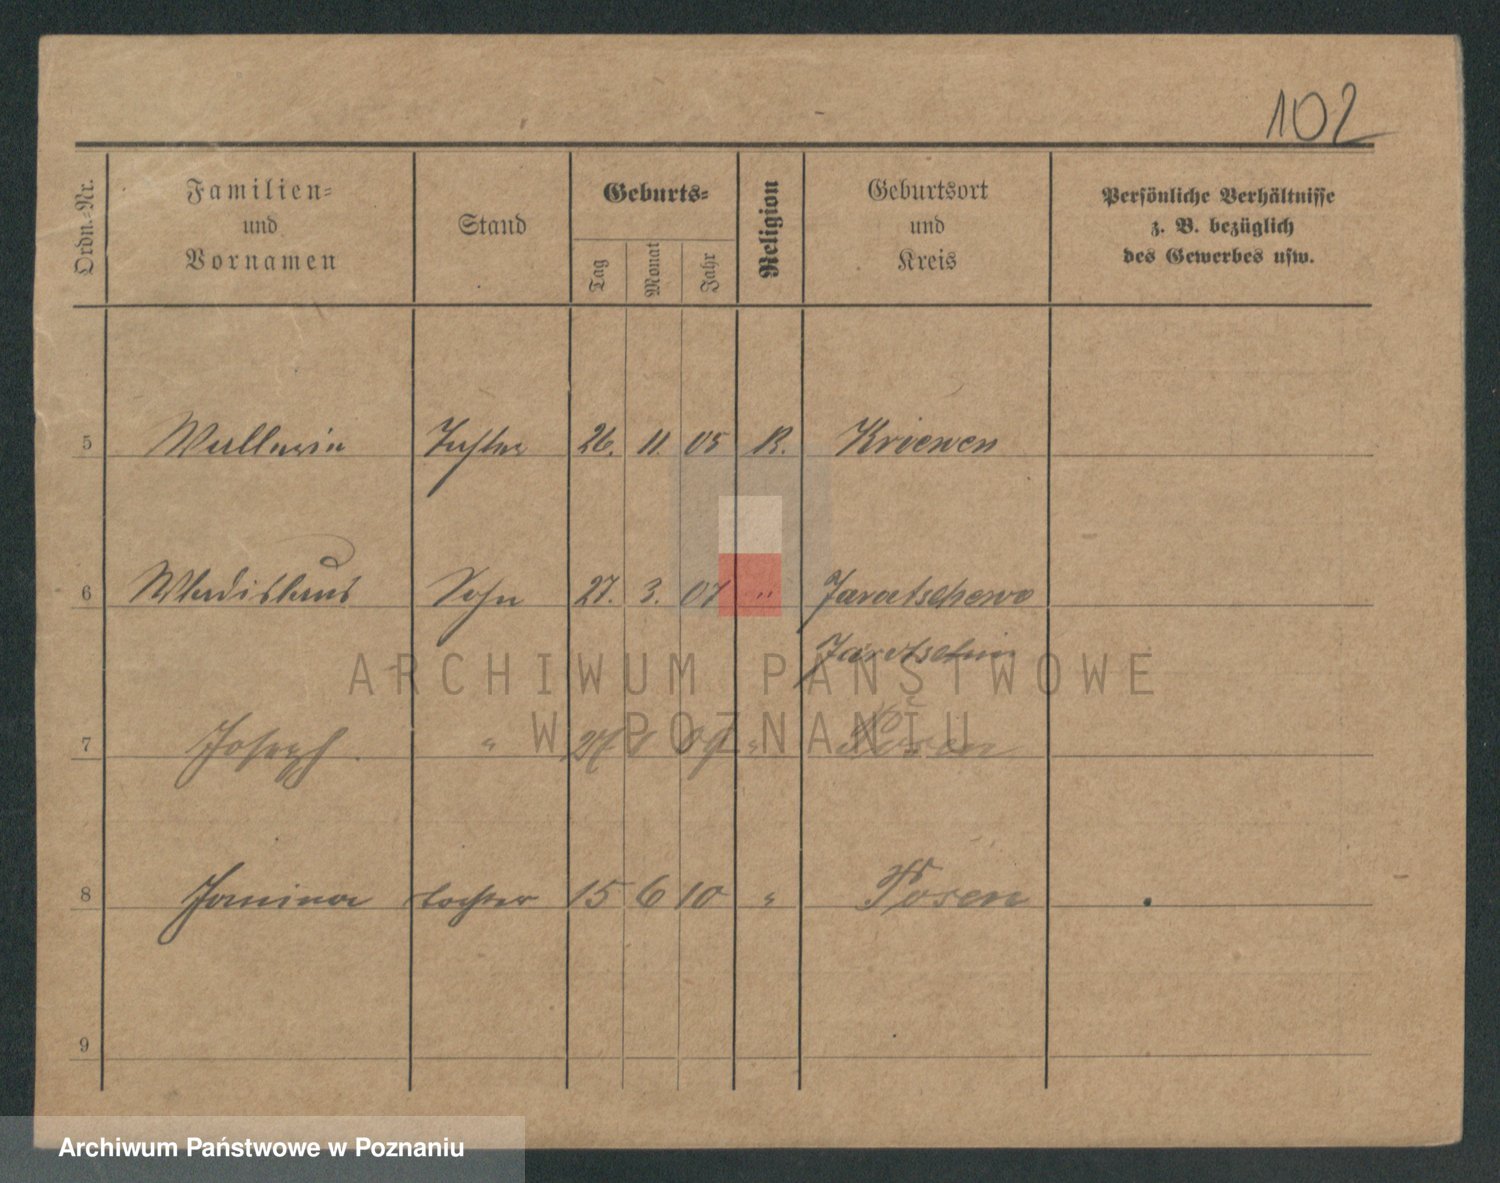 102
Ordn.-Nr.
Familien-
und
Vornamen
Stand
Geburts-
Tag
Monat
Jahr
Religion
Geburtsort
und
Kreis
Persönliche Verhältnisse
z. B. bezüglich
des Gewerbes usw.
5 Tochter 26. 11. 05 K. Kriewen
6 Wladislaus Sohn 27. 3. 07 " Jaratschewo
Jarotschin
7 Joseph " 09 " Posen
8 Janina Tochter 15 6 10 " Posen
9
ARCHIWUM PAŃSTWOWE
W POZNANIU
Archiwum Państwowe w Poznaniu